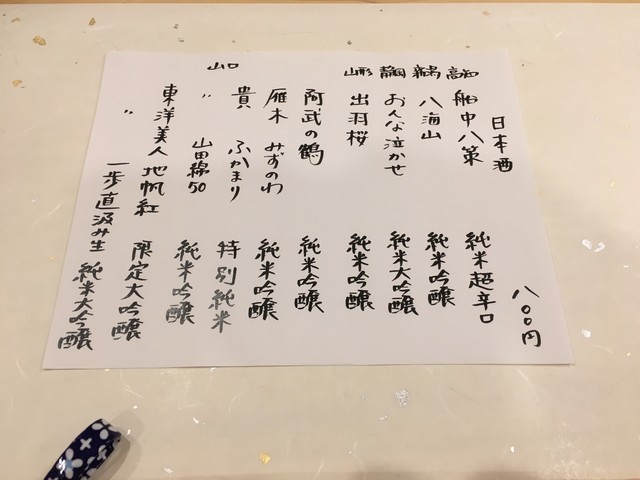 日本酒 八〇〇円
高知 船中八策 純米超辛口
新潟 八海山 純米吟醸
静岡 おんな泣かせ 純米大吟醸
山形 出羽桜 純米吟醸
山口 阿武の鶴 純米吟醸
雁木 みずのわ 純米吟醸
貴 ふかまり 特別純米
〃 山田錦50 純米吟醸
東洋美人 地帆紅 限定大吟醸
〃 一歩直汲み生 純米大吟醸